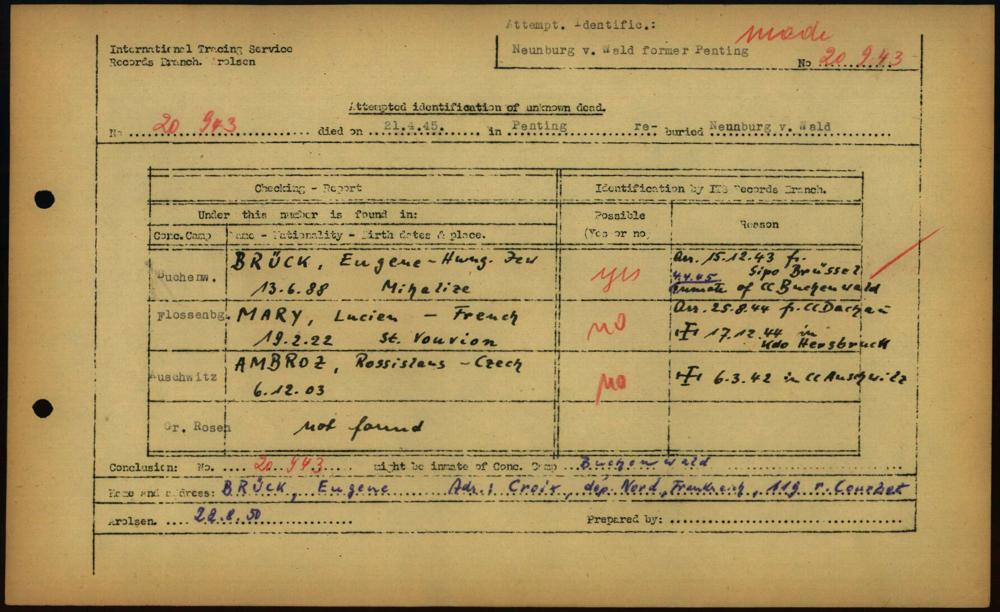 Attempt. Identific.:
International Tracing Service
Records Branch. Arolsen
Neunburg v. Wald former Penting
made
No 20 943
Attempted identification of unknown dead.
No 20 943 died on 21.4.45. in Penting re- buried Neunburg v. Wald
Checking - Report
Identification by ITS Records Branch.
Under this number is found in:
Possible
(Yes or no)
Reason
Conc.Camp
Name - Nationality - Birth dates & place.
Buchenw.
BRÜCK, Eugene - Hung. Jew
13.6.88 Mihalize
yes
Arr. 15.12.43 fr.
Sipo Brüssel
inmate of CC Buchenwald
Flossenbg.
MARY, Lucien - French
19.2.22 St. Vouvion
no
Arr. 25.8.44 fr. CC Dachau
17.12.44 in
Kdo Hersbruck
Auschwitz
AMBROZ, Rossislaus - Czech
6.12.03
no
6.3.42 in CC Auschwitz
Gr. Rosen
not found
Conclusion: No. 20 943 might be inmate of Conc. Camp Buchenwald
Name and address: BRÜCK, Eugene Adr.: Croix, dep. Nord, Frankreich, 119 r. Courbet
Arolsen. 22.8.50
Prepared by: